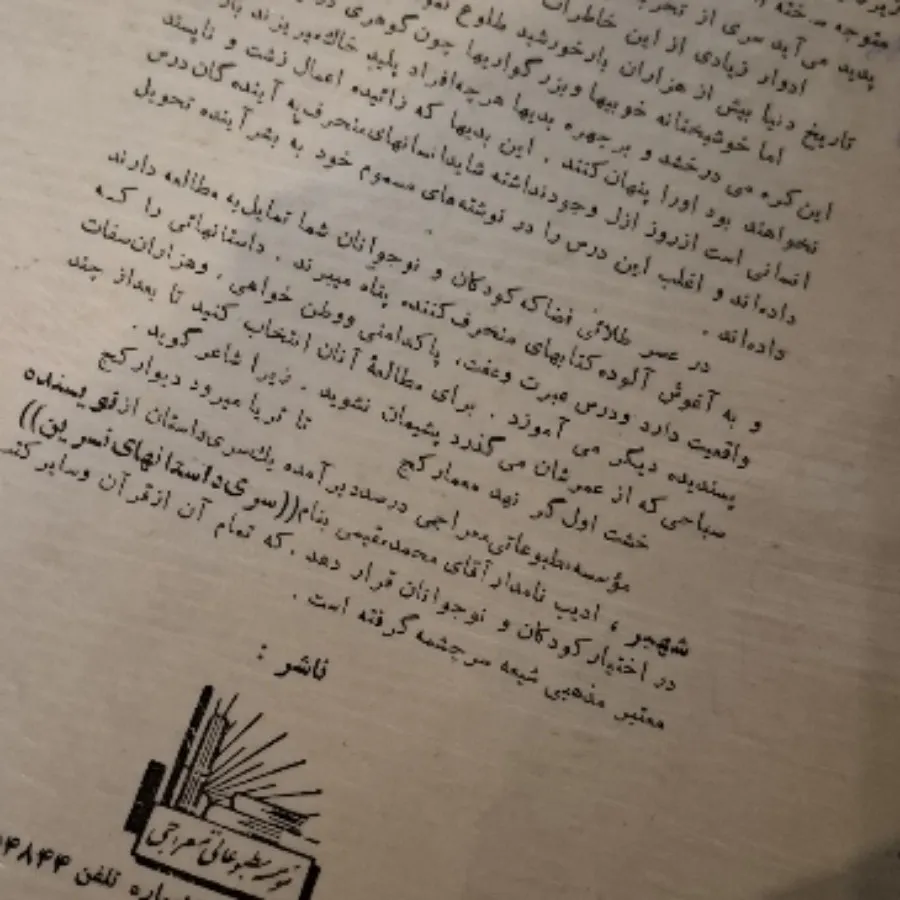 متوجه ساخته
پدید می‌آید سری از
ادوار زیادی از این خاطرات
تاریخ دنیا بیش از هزاران بار خورشید طلوع
اما خوشبختانه خوبیها وبزرگواریها چون گوهری
این کره می درخشد و برچهره بدیها هرچه افراد پلید خاك میریزند
نخواهند بود اورا پنهان کنند . این بدیها که زائیده اعمال زشت و ناپسند
انسانی است ازروز ازل وجودنداشته شاید انسانهای منحرف به آینده گان درس
داده‌اند و اغلب این درس را در نوشته‌های مسموم خود به بشر آینده تحویل
داده‌اند .
در عصر طلائی فضا که کودکان و نوجوانان شما تمایل به مطالعه دارند
و به آغوش آلوده کتابهای منحرف کننده پناه میبرند . داستانهائی را کـه
واقعیت دارد ودرس عبرت وعفت، پاکدامنی ووطن خواهی ، وهزاران صفات
پسندیده دیگر می آموزد . برای مطالعهٔ آنان انتخاب کنید تا بعداز چند
صباحی که از عمرشان می گذرد پشیمان نشوید . زیرا شاعر گوید .
خشت اول گر نهد معمار کج تا ثریا میرود دیوار کج
مؤسسه مطبوعاتی معراجی درصدد برآمده یك سری داستان از نویسنده
شهیر ، ادیب نامدار آقای محمد مقیمی بنام ((سری داستانهای نسرین))
در اختیار کودکان و نوجوانان قرار دهد . که تمام آن ازقرآن وسایر کتب
معتبر مذهبی شیعه سرچشمه گرفته است .
ناشر :
مطبوعاتی معراجی
تلفن